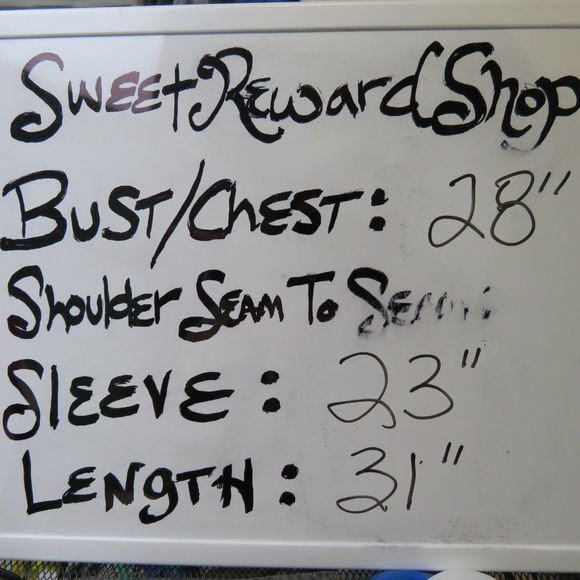 Sweet Reward Shop
Bust/Chest: 28"
Shoulder Seam To Seam:
Sleeve: 23"
Length: 31"